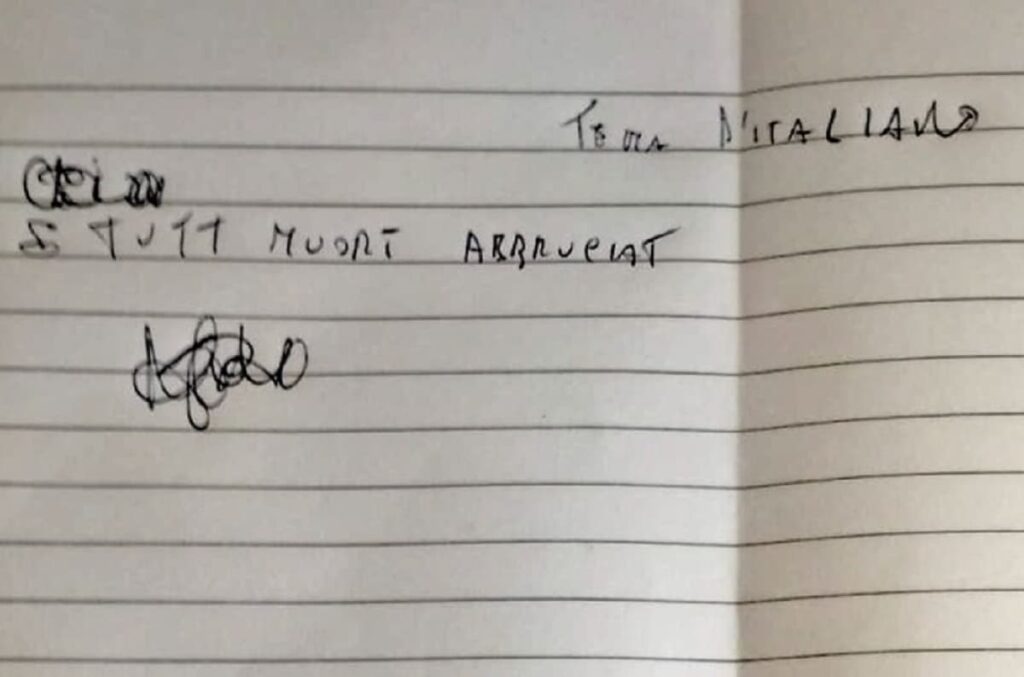 TEMA D'ITALIANO
S TUTT MUORT ABBRUCIAT